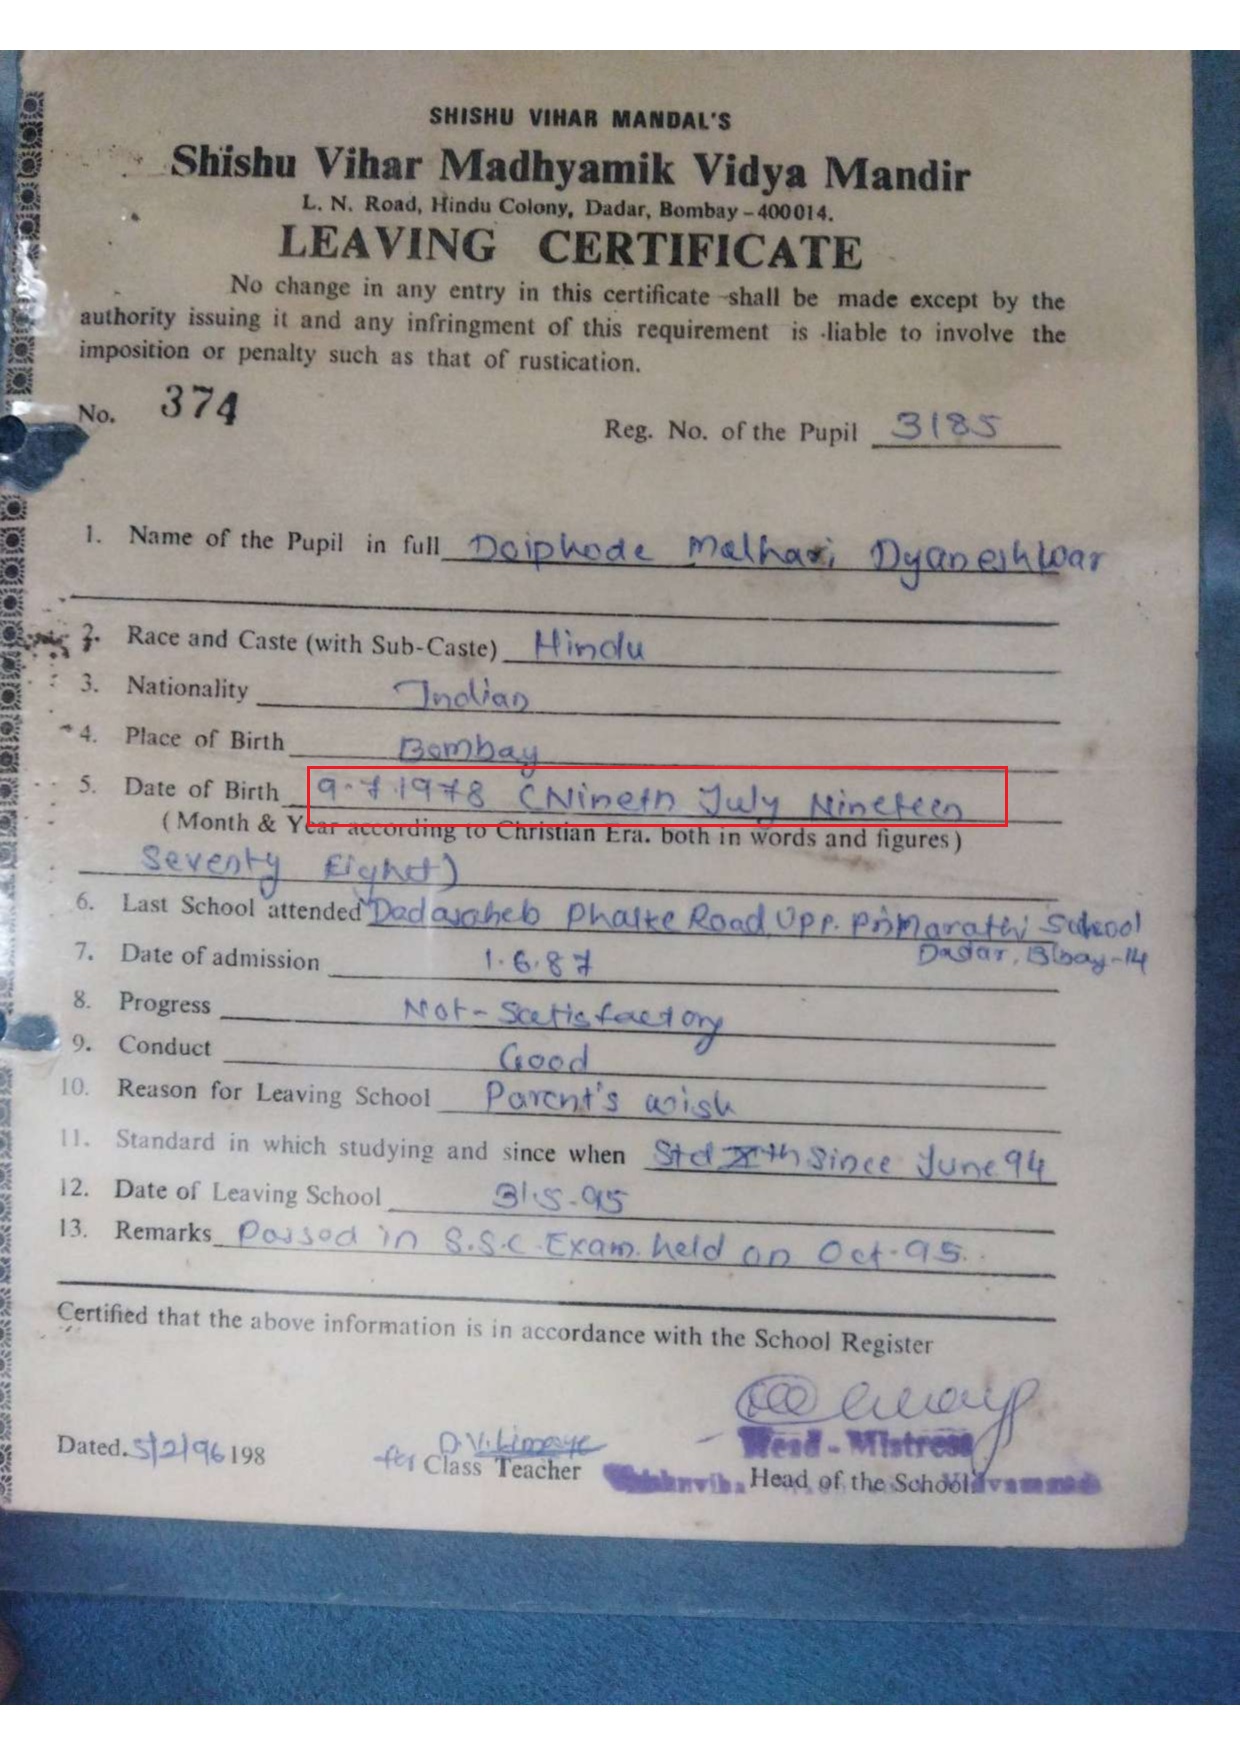 SHISHU VIHAR MANDAL'S
Shishu Vihar Madhyamik Vidya Mandir
L. N. Road, Hindu Colony, Dadar, Bombay - 400014.
LEAVING CERTIFICATE
No change in any entry in this certificate shall be made except by the
authority issuing it and any infringment of this requirement is liable to involve the
imposition or penalty such as that of rustication.
No. 374
Reg. No. of the Pupil 3185
1. Name of the Pupil in full Doiphode Malhari Dyaneshwar
2. Race and Caste (with Sub-Caste) Hindu
3. Nationality Indian
4. Place of Birth Bombay
5. Date of Birth 9-7-1978 (Nineth July Nineteen
(Month & Year according to Christian Era. both in words and figures)
Seventy Eight)
6. Last School attended Dadasaheb Phalke Road Upp. Pri Marathi School
Dadar, Bbay-14
7. Date of admission 1.6.87
8. Progress Not-Satisfactory
9. Conduct Good
10. Reason for Leaving School Parent's wish
11. Standard in which studying and since when Std Xth Since June 94
12. Date of Leaving School 31.5-95
13. Remarks Passed in S.S.C. Exam. held on Oct-95.
Certified that the above information is in accordance with the School Register
Dated. 5/2/96 198
D.V. Limaye
for Class Teacher
Head - Mistress
Head of the School